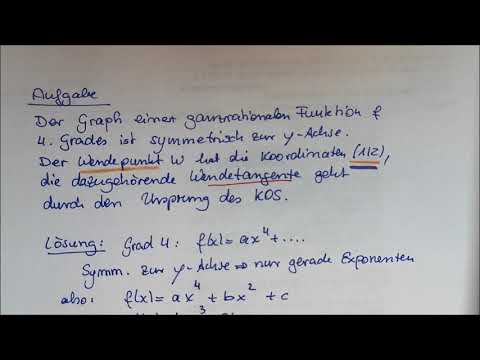 Aufgabe
Der Graph einer ganzrationalen Funktion f
4. Grades ist symmetrisch zur y-Achse.
Der Wendepunkt W hat die Koordinaten (1|2),
die dazugehörende Wendetangente geht
durch den Ursprung des KOS.
Lösung: Grad 4: f(x) = ax⁴ + ....
Symm. zur y-Achse ⇒ nur gerade Exponenten
also: f(x) = ax⁴ + bx² + c